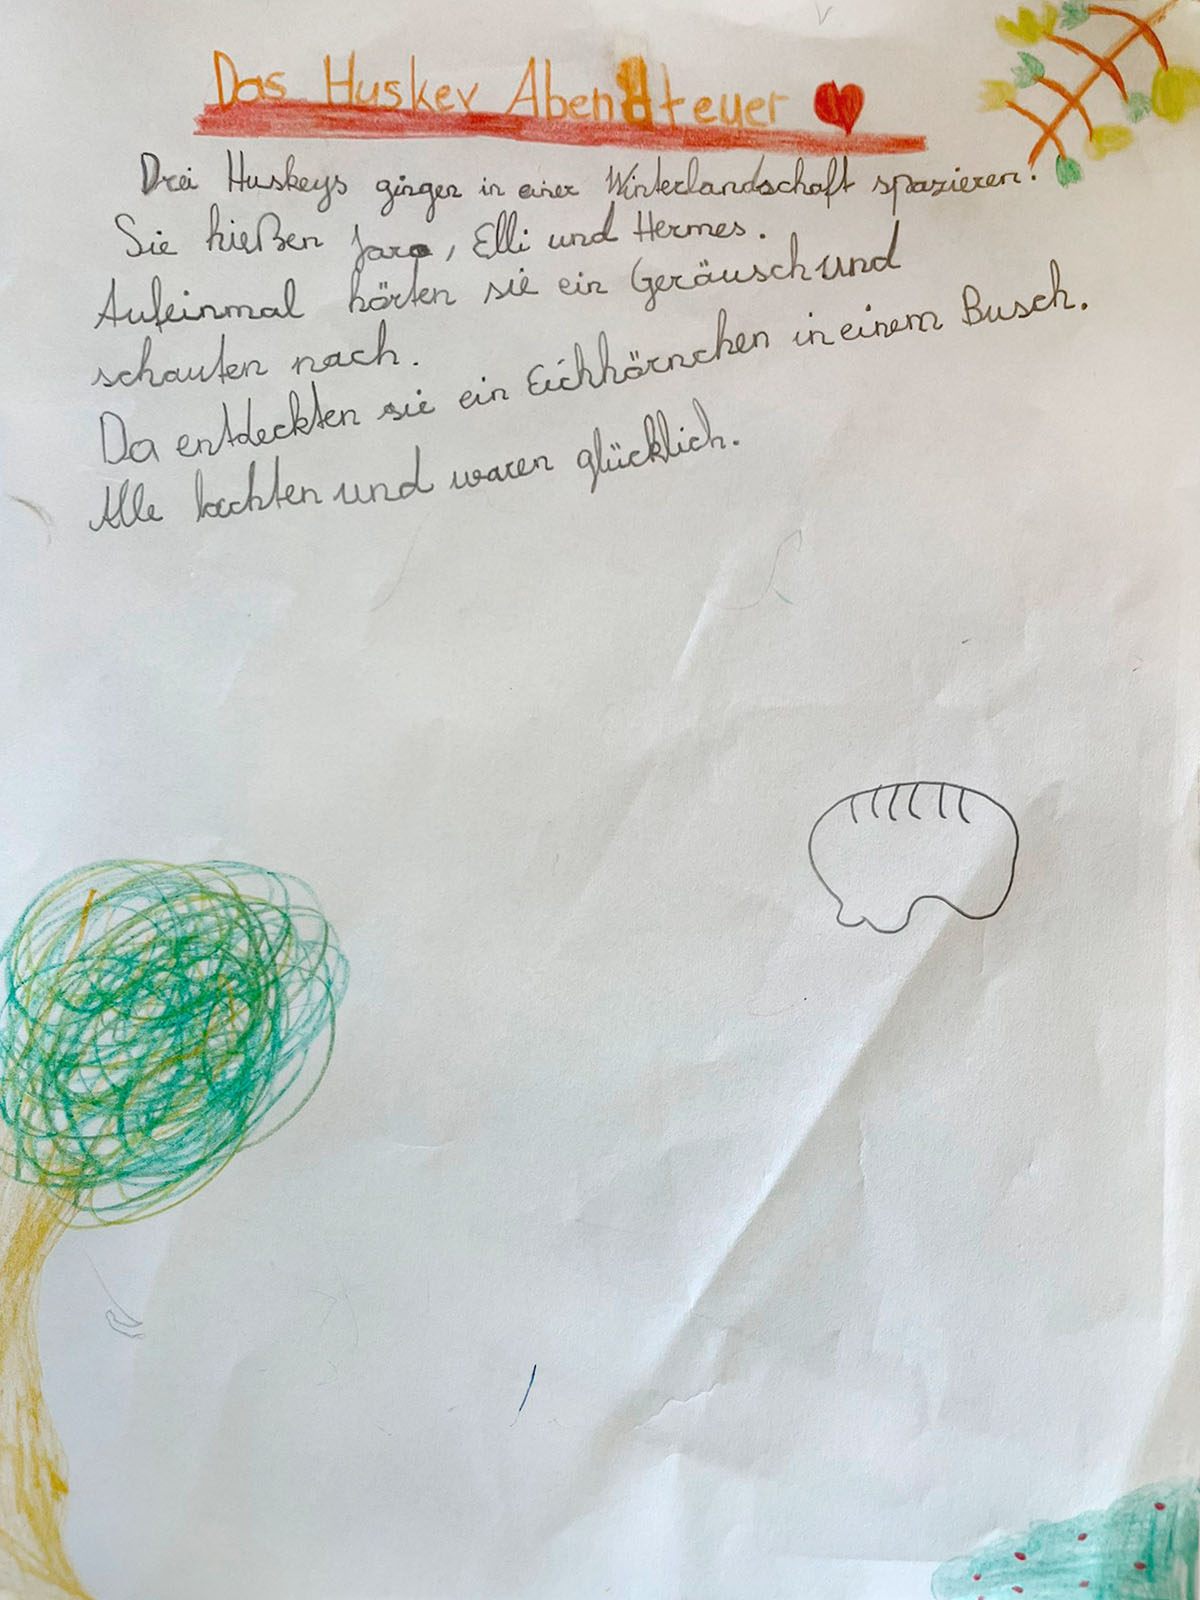 Das Huskey Abenteuer
Drei Huskeys gingen in einer Winterlandschaft spazieren.
Sie hießen Jara, Elli und Hermes.
Aufeinmal hörten sie ein Geräusch und
schauten nach.
Da entdeckten sie ein Eichhörnchen in einem Busch.
Alle lachten und waren glücklich.